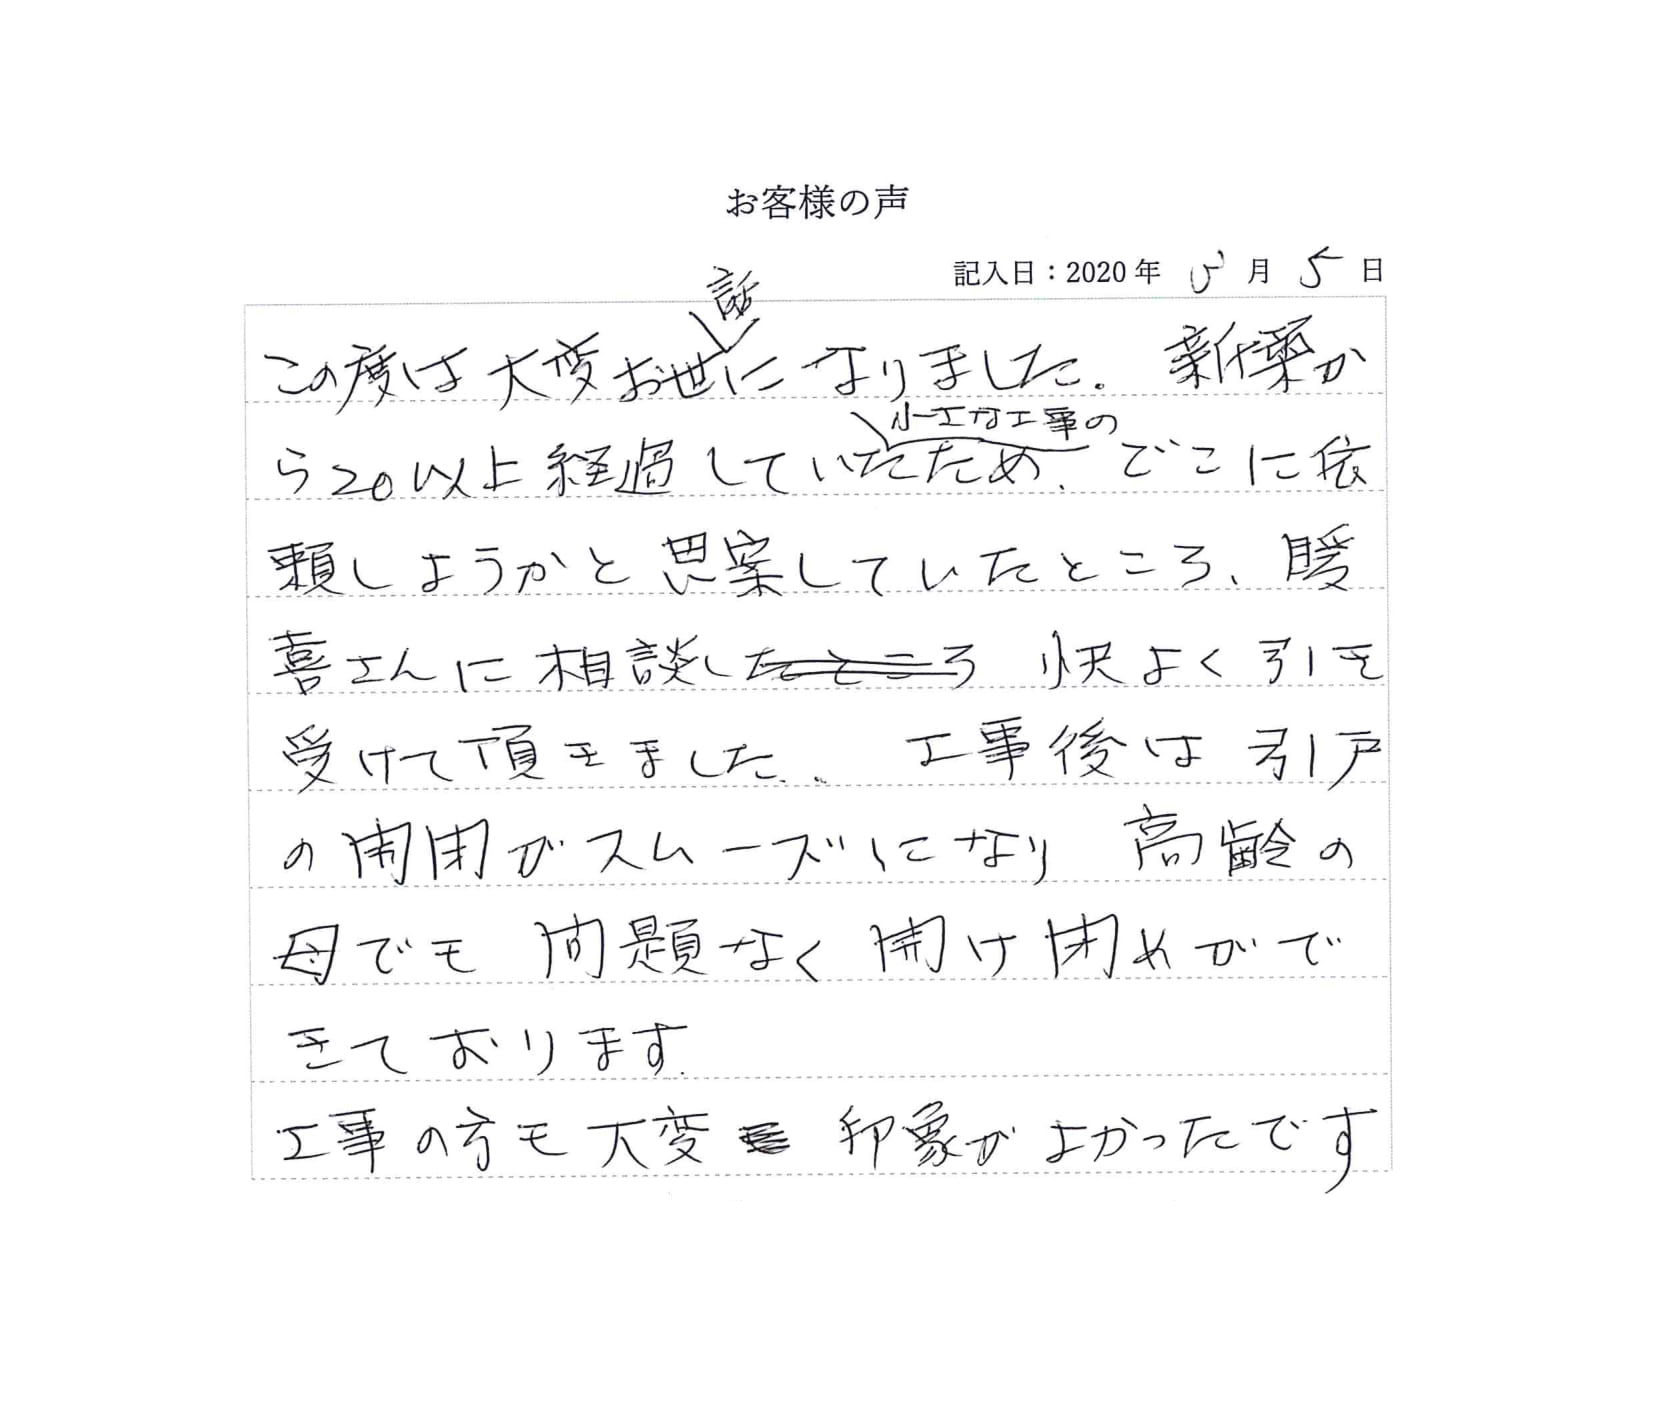 お客様の声
記入日：2020年 月 5 日
この度は大変お世話になりました。新築か
ら20以上経過していたため、小さな工事のためどこに依
頼しようかと思案していたところ、暖
喜さんに相談したところ 快よく引き
受けて頂きました。 工事後は引戸
の開閉がスムーズになり 高齢の
母でも 問題なく開け閉めがで
きております。
工事の方も大変 印象がよかったです